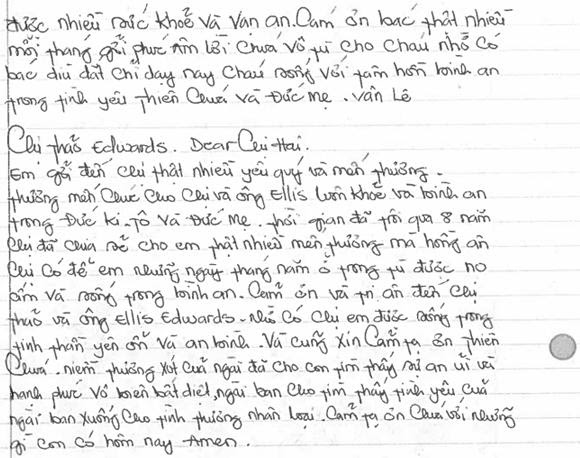 được nhiều sức khoẻ và Vạn an. Cám ơn bác thật nhiều
mỗi tháng gửi phúc âm lời Chúa vô tù cho cháu nhờ có
bác dìu dắt chỉ dạy nay Cháu sống với tâm hồn bình an
trong tình yêu thiên Chúa và Đức mẹ. Vân Lê
Chị thảo Edwards. Dear Chị Hai.
Em gửi đến chị thật nhiều yêu quý và mến thương.
thương mến Chúc Cho Chị và ông Ellis luôn khoẻ và bình an
trong Đức ki-tô và Đức mẹ. thời gian đã trôi qua 8 năm
Chị đã chia sẻ cho em thật nhiều mến thương mà hồng ân
Chị Có để em những ngày tháng năm ở trong tù được no
ấm và sống trong bình an. Cảm ơn và tri ân đến chị
thảo và ông Ellis Edwards. nhờ Có Chị em được sống trong
tinh thần yên ổn và an bình. Và cũng xin Cảm tạ ơn thiên
Chúa. niềm thương xót Của ngài đã cho con tìm thấy sự an ủi và
hạnh phúc vô biên bất diệt, ngài ban Cho tìm thấy tình yêu của
ngài ban xuống Cho tình thương nhân loại. Cảm tạ ơn Chúa với những
gì con có hôm nay Amen.